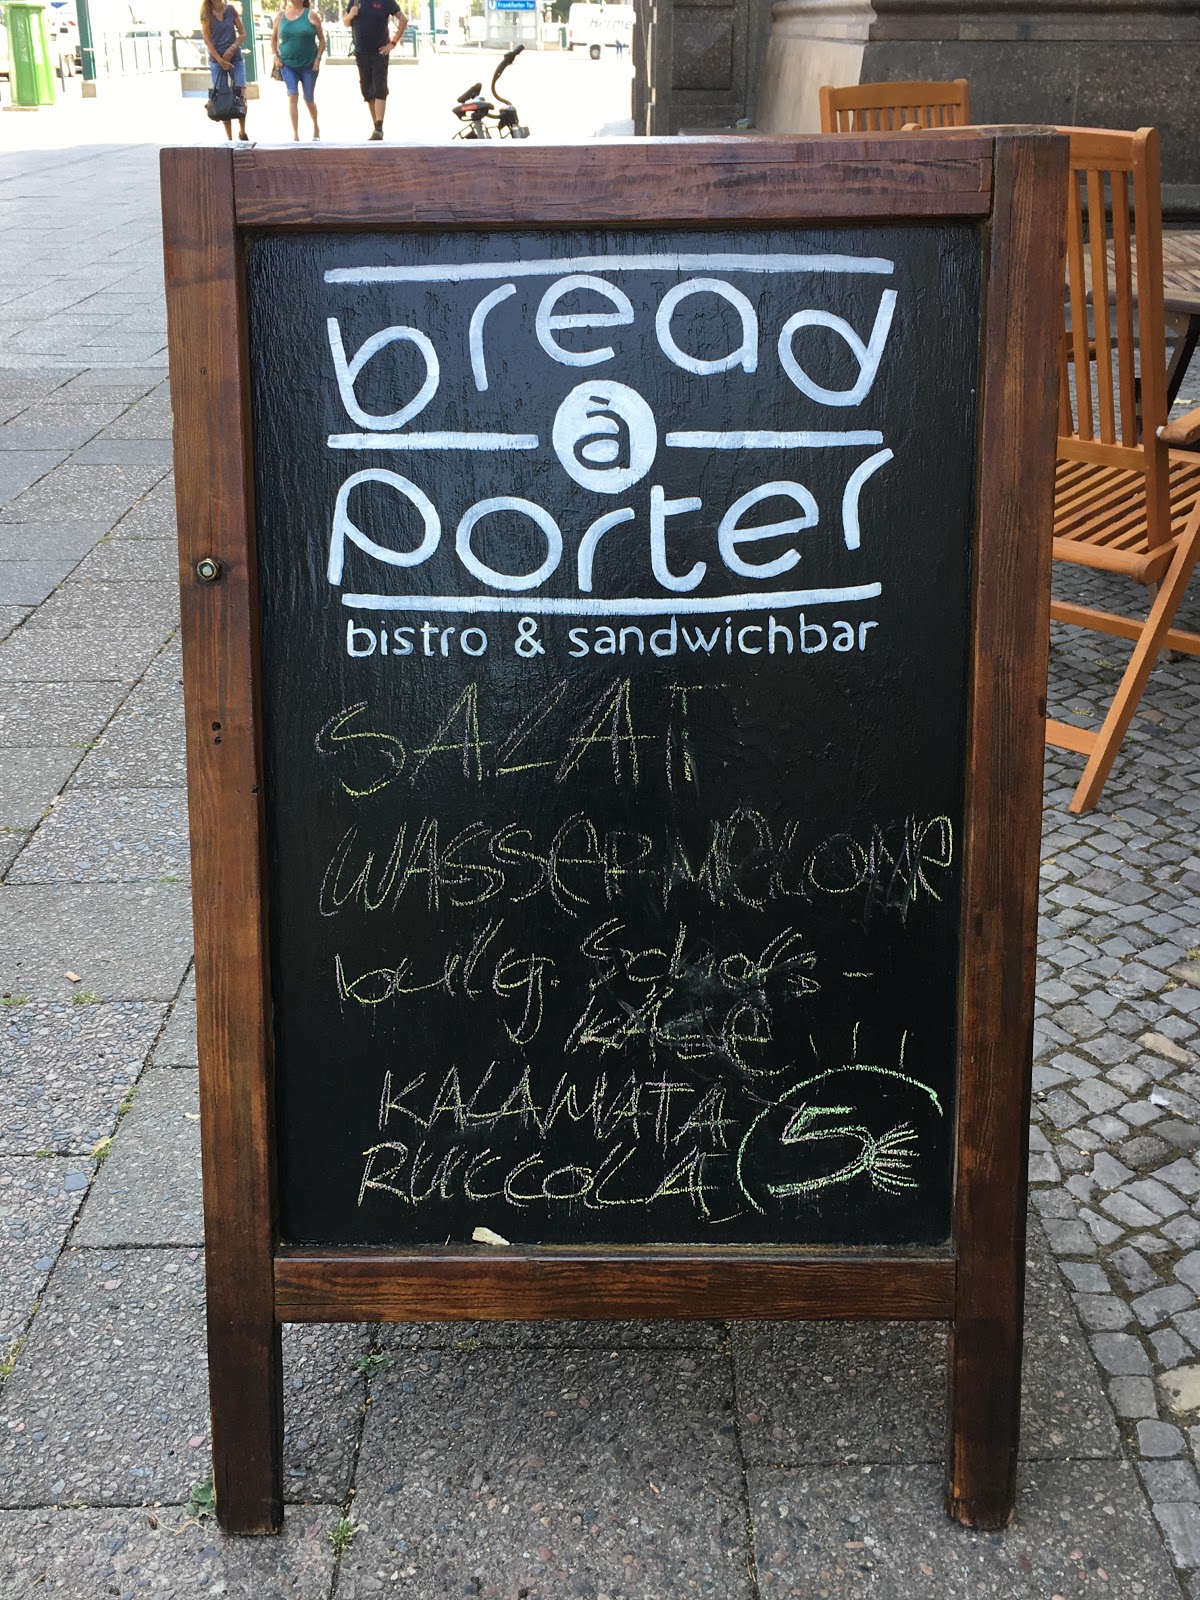 U Frankfurter Tor
bread
à
Porter
bistro & sandwichbar
SALAT
WASSERMELONE
bulg. Schafs-
KÄSE
KALAMATA
RUCCOLA
5€